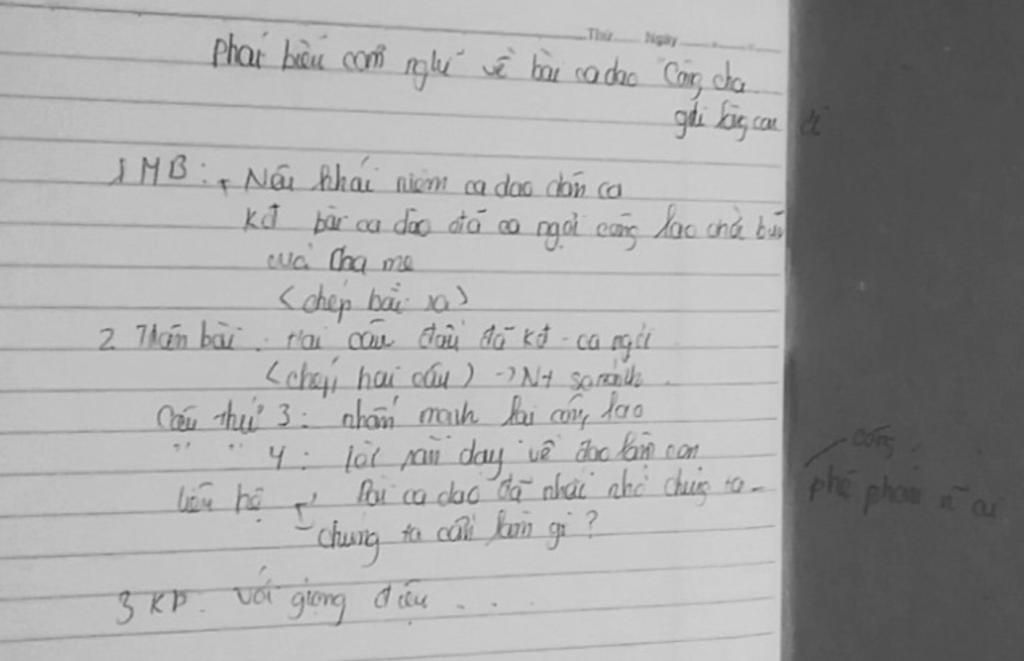 Thứ Ngày
Phát biểu cảm nghĩ về bài ca dao "Công cha
gửi lòng con
1 MB: + Nêu khái niệm ca dao dân ca
KĐ bài ca dao đã ca ngợi công lao
của cha mẹ
(chép bài ra)
2 Thân bài. Hai câu đầu đã KĐ - ca ngợi
(chép hai câu) -> NT so sánh
Câu thứ 3: nhấn mạnh lại công lao
" " 4: lời răn dạy về đạo làm con
liên hệ Bài ca dao đã nhắc nhở chúng ta -
chúng ta cần làm gì?
3 KB. Với giọng điệu ...
công
phê phán